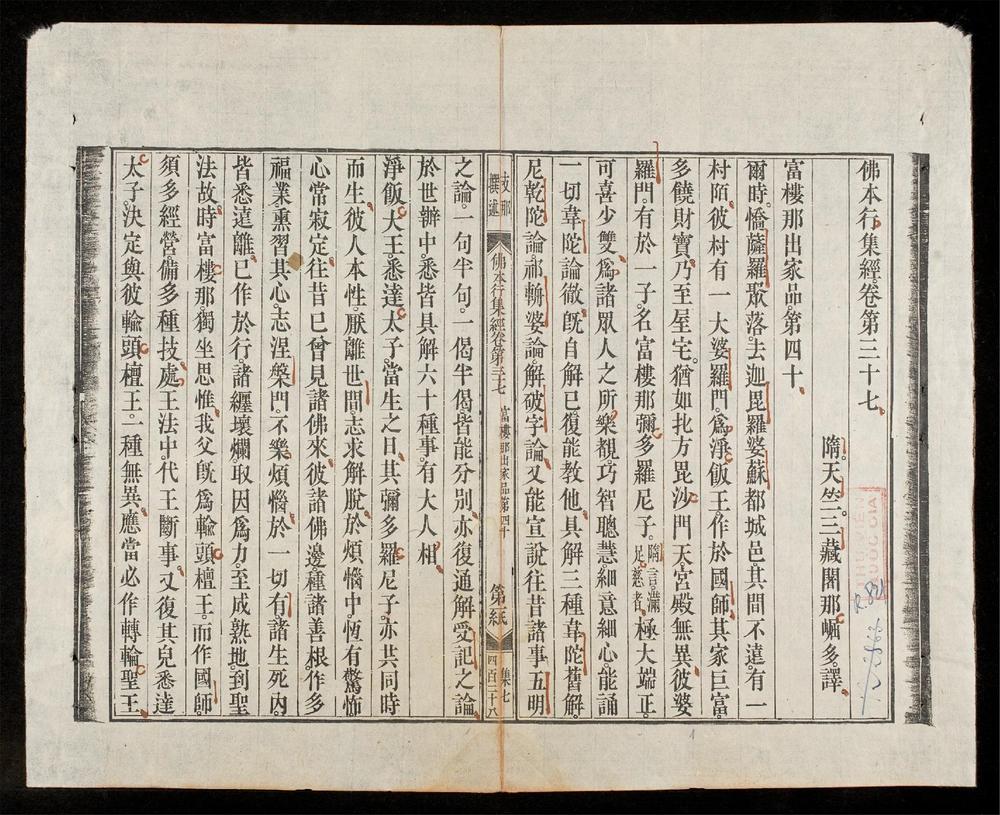 佛本行集經卷第三十七
隋。天竺。三藏闍那崛多。譯
富樓那出家品第四十
爾時。憍薩羅聚落。去迦毘羅婆蘇都城邑。其間不遠。有一
村陌。彼村有一大婆羅門。爲淨飯王。作於國師。其家巨富。
多饒財寶。乃至屋宅。猶如北方毘沙門天。宮殿無異。彼婆
羅門。有於一子。名富樓那彌多羅尼子。隋言滿足慈者。極大端正。
可喜少雙。爲諸眾人之所樂覩。巧智聰慧。細意細心。能誦
一切韋陀論徹。旣自解已。復能教他。具解三種韋陀舊解。
尼乾陀論。祁輈婆論。解破字論。又能宣說往昔諸事五明
支那撰述
佛本行集經卷第三十七
富樓那出家品第四十
第一紙
集七
四百二十八
之論。一句半句。一偈半偈。皆能分別。亦復通解受記之論。
於世辯中。悉皆具解六十種事。有大人相。
淨飯大王。悉達太子。當生之日。其彌多羅尼子。亦共同時
而生。彼人本性。厭離世間。志求解脫。於煩惱中。恆有驚怖
心常寂定。往昔已曾見諸佛來。彼諸佛邊。種諸善根。作多
福業。熏習其心。志涅槃門。不樂煩惱。於一切有諸生死。內
皆悉遠離。已作於行。諸纏壞爛。取因爲力。至成熟地。到聖
法故。時富樓那獨坐思惟。我父旣爲輸頭檀王。而作國師。
須多經營。備多種技。處王法中。代王斷事。又復其兒悉達
太子。決定與彼輸頭檀王。一種無異。應當必作轉輪聖王
THƯ VIỆN
QUỐC GIA
R.